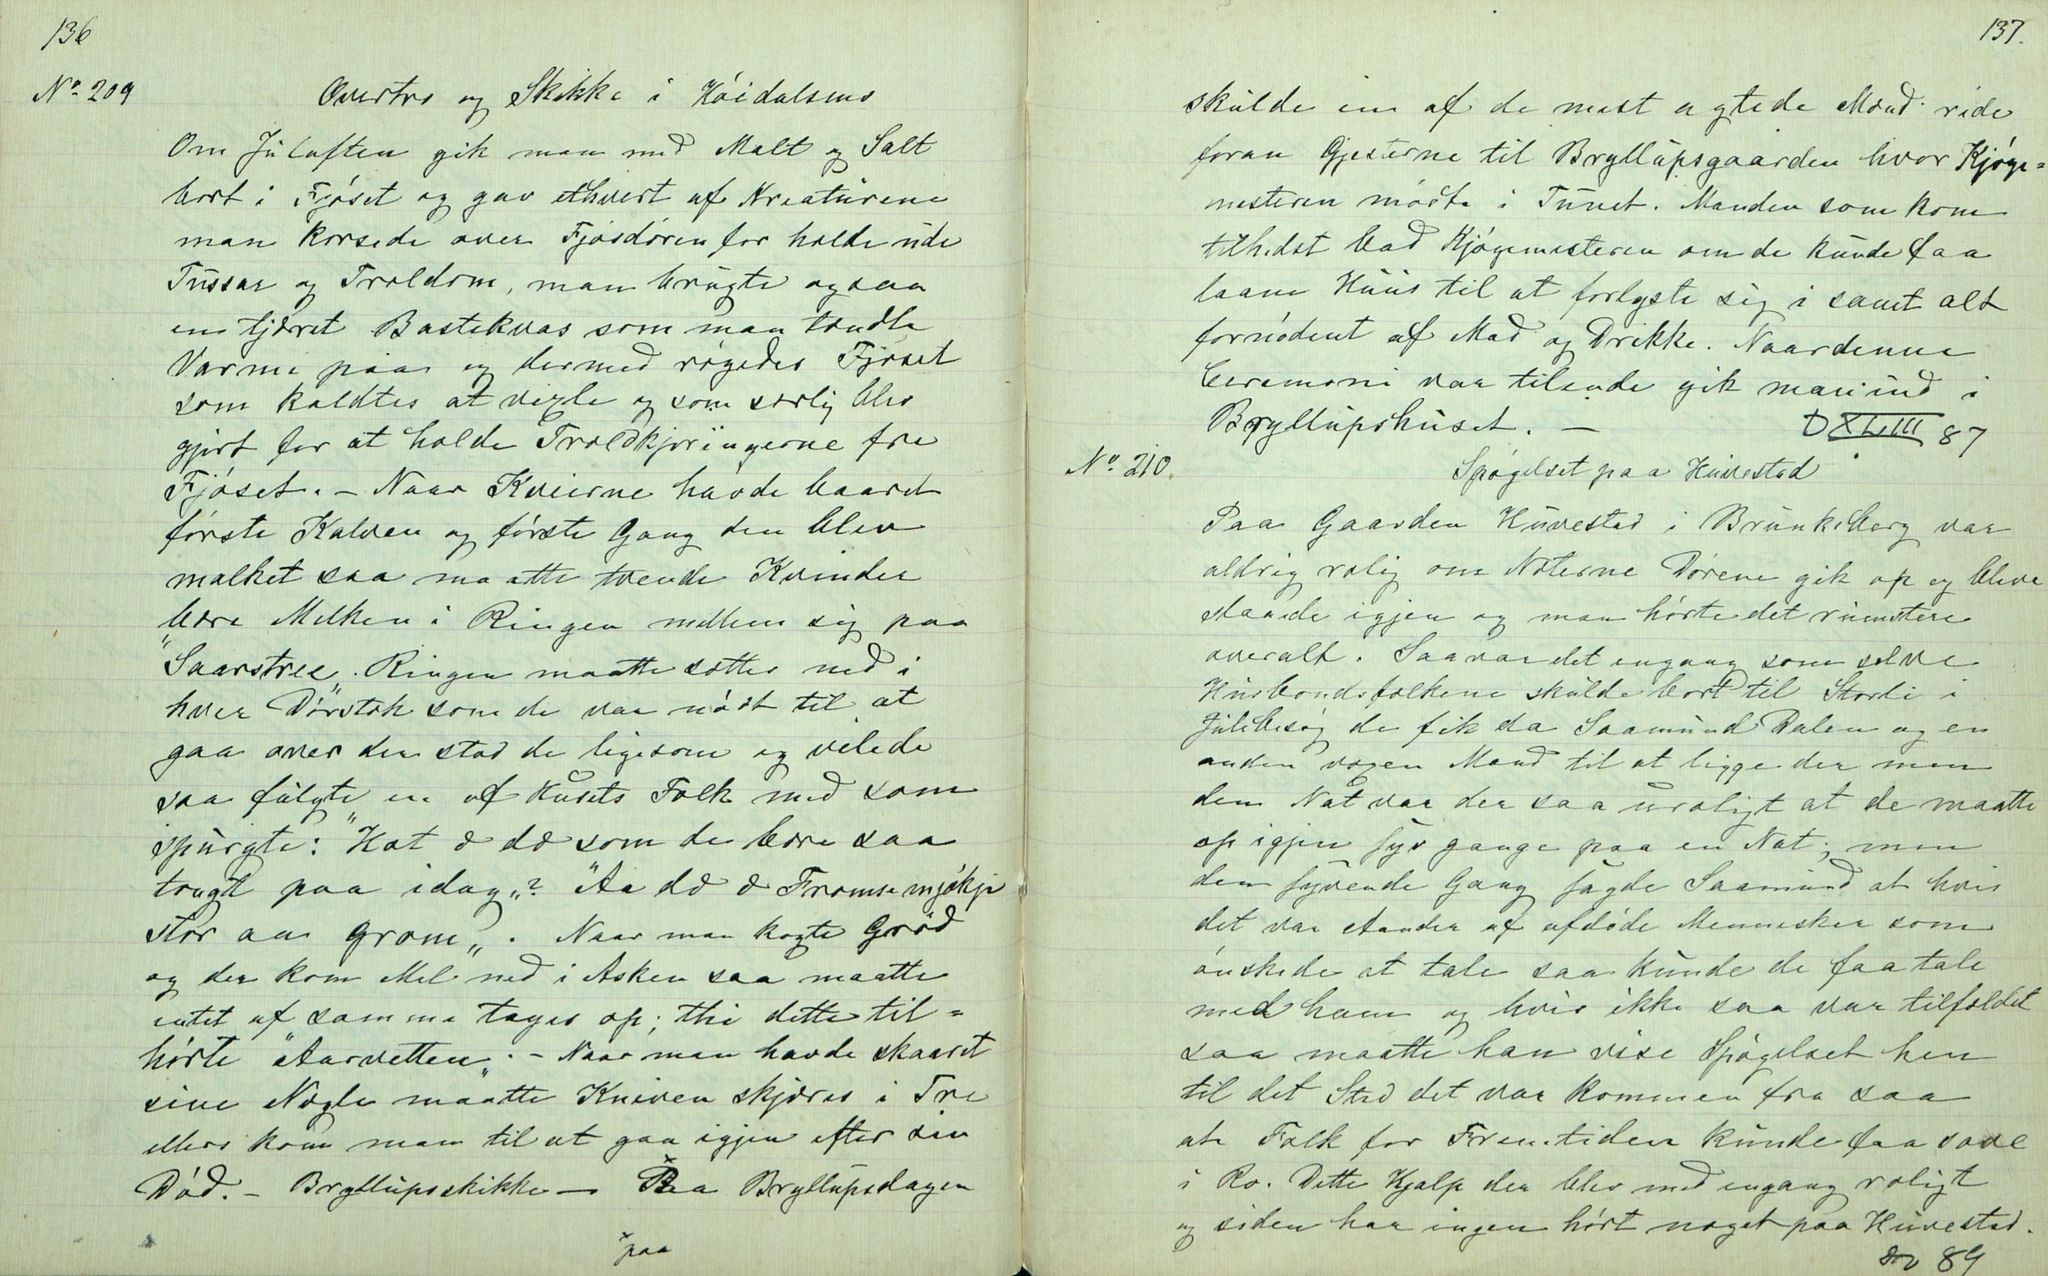 136
No. 209
Overtro og Skikke i Høidalsmo
Om Juleaften gik man med Malt og Salt
bort i Fjøset og gav ethvert af Kreaturene
man korsede over Fjøsdøren for holde ude
Tussar og Troldom, man brugte ogsaa
en tjæret Bastekvas som man tændte
Varme paa og dermed røgedes Fjøset
som kaldtes at vigle og som særlig blev
gjort for at holde Troldkjæringerne fra
Fjøset. – Naar Kveierne havde baaret
første Kalven og første Gang den blev
malket saa maatte tvende Kvinder
bære Melken i Ringen mellem sig paa
"Saarstree„. Ringen maatte sættes ned i
hver Dørstok som de var nødt til at
gaa over der stod de ligesom og velede
saa fulgte en af Husets Folk med som
spurgte: "Hot æ dæ som de bære saa
tongt paa idag„? "Aa dæ æ Fromsemjøkje
stor aa grom„. Naar man kogte Grød
og der kom Mel ned i Asken saa maatte
intet af samme tages op; thi dette til=
hørte "Aarvetten„. – Naar man havde skaaret
sine Negle maatte Kniven skjæres i Træ
ellers kom man til at gaa igjen efter sin
Død. – Bryllupsskikke – Paa Bryllupsdagen
× paa
137.
skulde en af de mest agtede Mænd ride
foran Gjesterne til Bryllupsgaarden hvor Kjøge=
mesteren mødte i Tunet. Manden som kom
tilhest bad Kjøgemesteren om de kunde faa
laane Huus til at forlyste sig i samt alt
fornødent af Mad og Drikke. Naar denne
Ceremoni var tilende gik man ind i
Bryllupshuset. –
D XLIII 87
No. 210.
Spøgelset paa Huvestad
Paa Gaarden Huvestad i Brunkeberg var
aldrig rolig om Nøterne Dørene gik op og bleve
staaende igjen og man hørte det rumstere
overalt. Saa var det engang som selve
Husbondsfolkene skulde bort til Stordi i
Julebesøg de fik da Saamund Dalen og en
anden vogen Mand til at ligge der men
den Nat var der saa uroligt at de maatte
op igjen syv gange paa en Nat; men
den syvende Gang sagde Saamund at hvis
det var Aander af afdøde Mennesker som
ønskede at tale saa kunde de faa tale
med ham og hvis ikke saa var tilfældet
saa maatte han vise Spøgelset hen
til det Sted det var kommen fra saa
at Folk for Fremtiden kunde faa sove
i Ro. Dette Hjalp der blev med engang roligt
og siden har ingen hørt noget paa Huvestad.
89